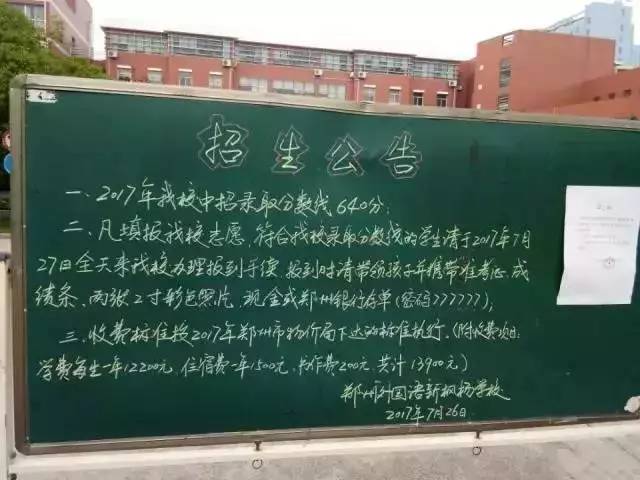 招生公告
一、2017年我校中招录取分数线640分;
二、凡填报我校志愿,符合我校录取分数线的学生请于2017年7月
27日全天来我校办理报到手续,报到时请带领孩子并携带准考证、成
绩条、两张2寸彩色照片、现金或郑州银行存单(密码777777);
三、收费标准按2017年郑州市物价局下达的标准执行。(附收费项目:
学费每生一年12200元,住宿费一年1500元,书作费200元,共计13900元)
郑州外国语新枫杨学校
2017年7月26日